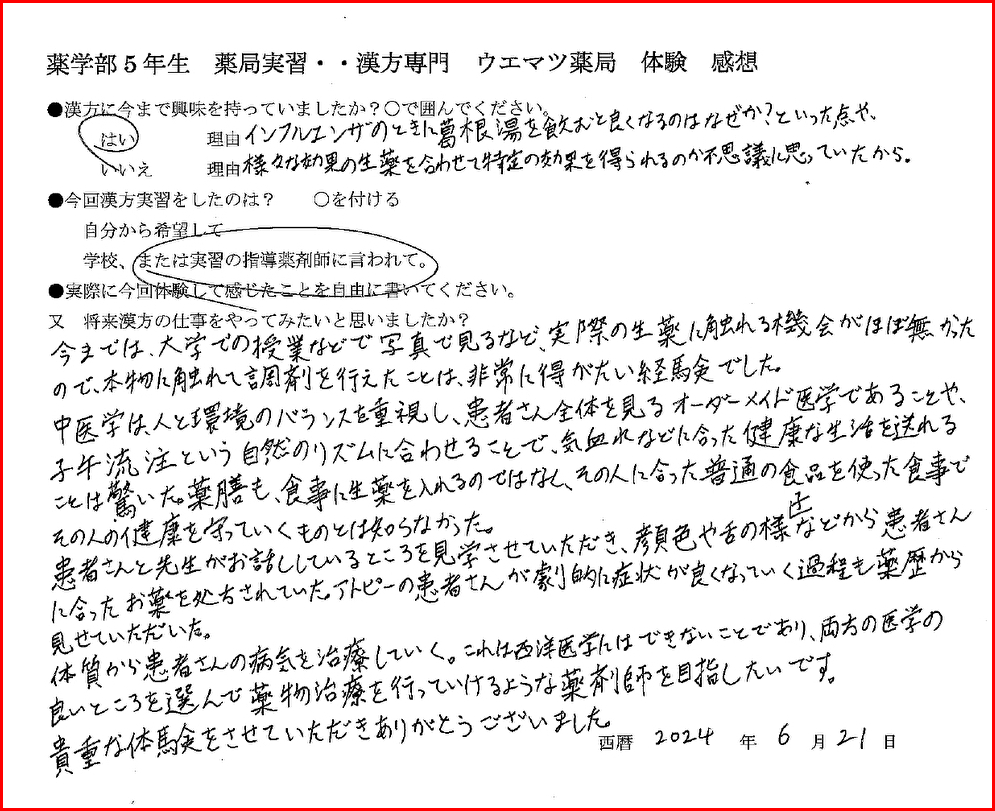 薬学部5年生　薬局実習・・漢方専門　ウエマツ薬局　体験　感想
●漢方に今まで興味を持っていましたか？○で囲んでください。
はい　理由 インフルエンザのときに葛根湯を飲むと良くなるのはなぜか？といった点や、
いいえ　理由 様々な効果の生薬を合わせて特定の効果を得られるのが不思議に思っていたから。
●今回漢方実習をしたのは？　○を付ける
自分から希望して
学校、または実習の指導薬剤師に言われて。
●実際に今回体験して感じたことを自由に書いてください。
又　将来漢方の仕事をやってみたいと思いましたか？
今までは、大学での授業などで写真で見るなど、実際の生薬に触れる機会がほぼ無かった
ので、本物に触れて調剤を行えたことは、非常に得がたい経験でした。
中医学は、人と環境のバランスを重視し、患者さん全体を見るオーダーメイド医学であることや、
子午流注という自然のリズムに合わせることで、気血水などに合った健康な生活を送れる
ことは驚いた。薬膳も、食事に生薬を入れるのではなく、その人に合った普通の食品を使った食事で
その人の健康を守っていくものとは知らなかった。
患者さんと先生がお話ししているところを見学させていただき、顔色や舌の様子などから患者さん
に合ったお薬を処方されていた。アトピーの患者さんが劇的に症状が良くなっていく過程も薬歴から
見せていただいた。
体質から患者さんの病気を治療していく。これは西洋医学にはできないことであり、両方の医学の
良いところを選んで薬物治療を行っていけるような薬剤師を目指したいです。
貴重な体験をさせていただきありがとうございました。
西暦 2024 年 6 月 21 日